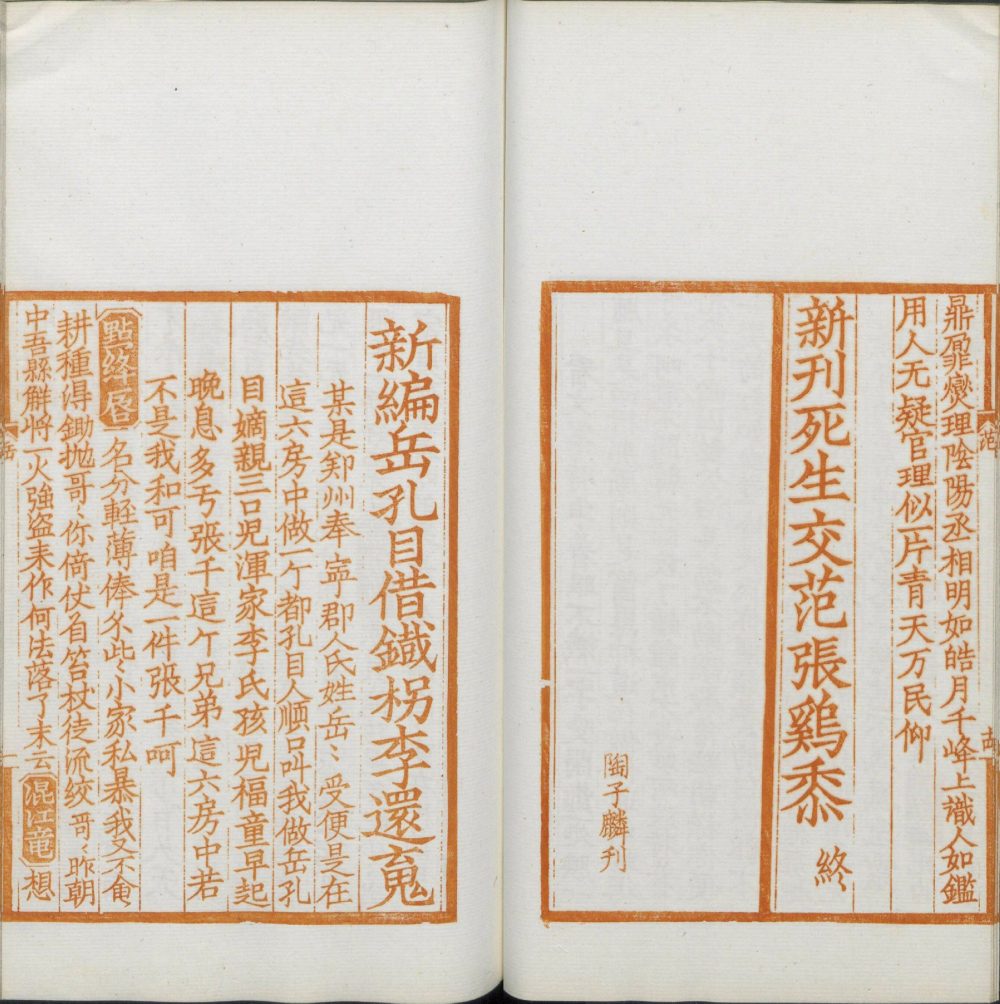 鼎鼐爕理陰陽丞相明如皓月千峰上識人如鑑
用人无疑官理似一片青天万民仰
新刊死生交范張鷄黍 終
陶子麟刋
新編岳孔目借鐵枴李還䰟
某是郑州奉寍郡人氏姓岳〻受便是在
這六房中做一亇都孔目人順口叫我做岳孔
目嫡親三口児渾家李氏孩児福童早起
晚息多亏張千這亇兄弟這六房中若
不是我和可咱是一件張千呵
點絳唇 名分輕薄俸夕此〻小家私暴〻我又不
耕種得鋤抛哥〻你倚仗着笞杖徒流絞哥〻昨朝
中吾縣解將一火強盗来作何法落了末云 混江竜 想